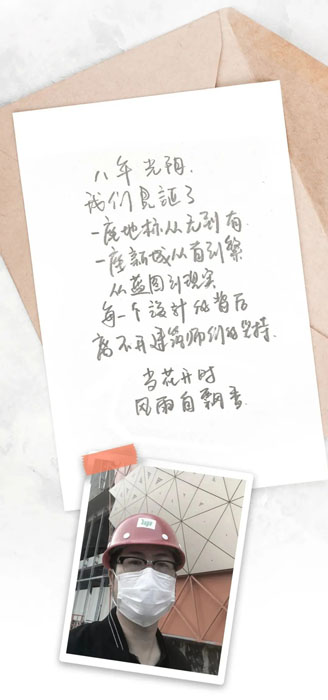 八年光阴.
我们見証了
一座地标从无到有.
一座新城从首到繁
从蓝图到现实
每一个設计的背后
离不开建筑师们的坚持.
当花开时
风雨自飘香.